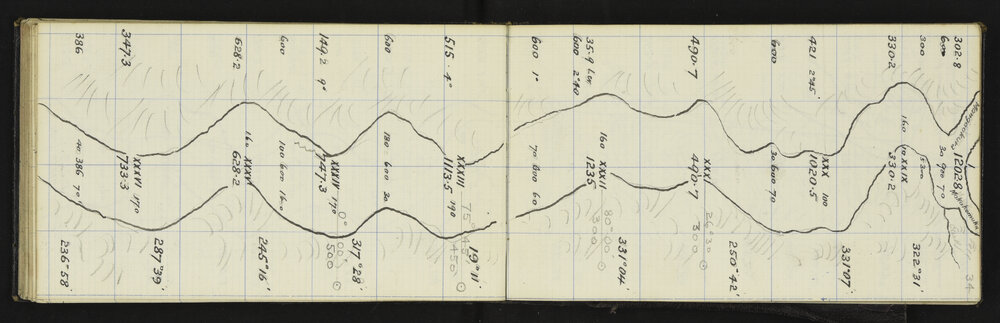 34
302.8
600
300
330.2
421 2°45'
600
490.7
35.9
600 2°40
600 1°
160
12028
30 900 70
XXIX
330.2
XXX 100
1020.5
30 600 70
XXXI
490.7
160
XXXII
1235
70 600 60
322°31'
331°07'
250°42'
26°30
300
331°04'
80°00'
300
515.4°
600
149.2 9°
600
628.2
347.3
386
XXXIII 190
1113.5
180 600 20
XXXIV 170
747.3
100 600 160
160 XXXV
628.2
XXXVI 170
733.3
40 386 70
119°11'
75°45'
450
317°28'
0°00'
500
245°16'
287°39'
236°58'